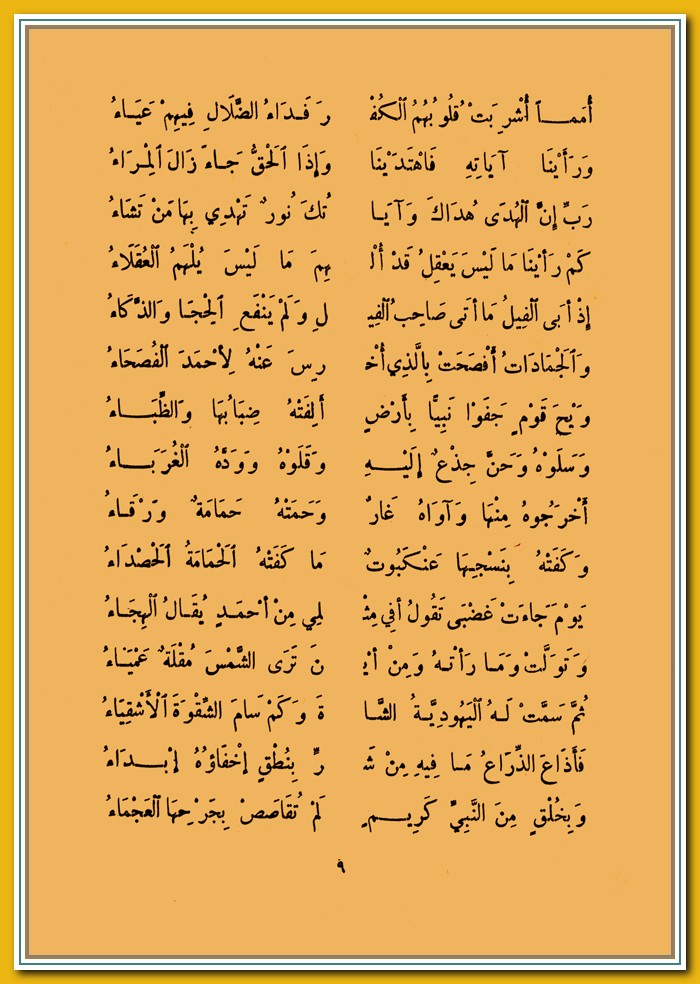 أُمَمــاً أُشْرِبَتْ قُلُوبُهُمُ ٱلْكُفْ رَ فَـدَاءُ الضَّلَالِ فِيهِمْ عَيَـاءُ
وَرَأَيْنَا آيَاتِهِ فَاهْتَدَيْنَا وَإِذَا ٱلْحَقُّ جَـاءَ زَالَ ٱلْمِـرَاءُ
رَبِّ إِنَّ ٱلْهُدَى هُدَاكَ وَآيَـا تُكَ نُورٌ تَهْدِي بِهَا مَنْ تَشَاءُ
كَمْ رَأَيْنَا مَا لَيْسَ يَعْقِلُ قَدْ أُلْـ هِمَ مَا لَيْسَ يُلْهَمُ ٱلْعُقَلَاءُ
إِذْ أَبَى ٱلْفِيلُ مَا أَتَى صَاحِبُ ٱلْفِيـ لِ وَلَمْ يَنْفَعِ ٱلْحِجَـا وَالذَّكَاءُ
وَٱلْجَمَادَاتُ أَفْصَحَتْ بِالَّذِي أُخْـ رِسَ عَنْهُ لِأَحْمَدَ ٱلْفُصَحَاءُ
وَيْحَ قَوْمٍ جَفَوْا نَبِيًّا بِأَرْضٍ أَلِفَتْهُ ضِبَابُهَا وَالظِّبَـــاءُ
وَسَلَوْهُ وَحَنَّ جِذْعٌ إِلَيْــهِ وَقَلَوْهُ وَوَدَّهُ ٱلْغُرَبَــاءُ
أَخْرَجُوهُ مِنْهَا وَآوَاهُ غَارٌ وَحَمَتْهُ حَمَامَةٌ وَرْقَـاءُ
وَكَفَتْهُ بِنَسْجِـهَا عَنْكَبُوتٌ مَا كَفَتْهُ ٱلْحَمَامَةُ ٱلْحَصْدَاءُ
يَوْمَ جَاءَتْ غَضْبَى تَقُولُ أَفِي مِثْـ لِي مِنْ أَحْمَـدٍ يُقَـالُ ٱلْهِجَـاءُ
وَتَوَلَّتْ وَمَـا رَأَتْـهُ وَمِنْ أَيْـ نَ تَرَى الشَّمْسَ مُقْلَةٌ عَمْيَـاءُ
ثُمَّ سَمَّتْ لَـهُ ٱلْيَهُودِيَّـةُ الشَّـا ةَ وَكَمْ سَامَ الشِّقْوَةَ ٱلْأَشْقِيَاءُ
فَأَذَاعَ الذِّرَاعُ مَـا فِيهِ مِنْ شَـ رٍّ بِنُطْقٍ إِخْفَاؤُهُ إِبْــدَاءُ
وَبِخُلْقٍ مِنَ النَّبِيِّ كَرِيــمٍ لَمْ تُقَاصَصْ بِجَرْحِهَا ٱلْعَجْمَاءُ
٩